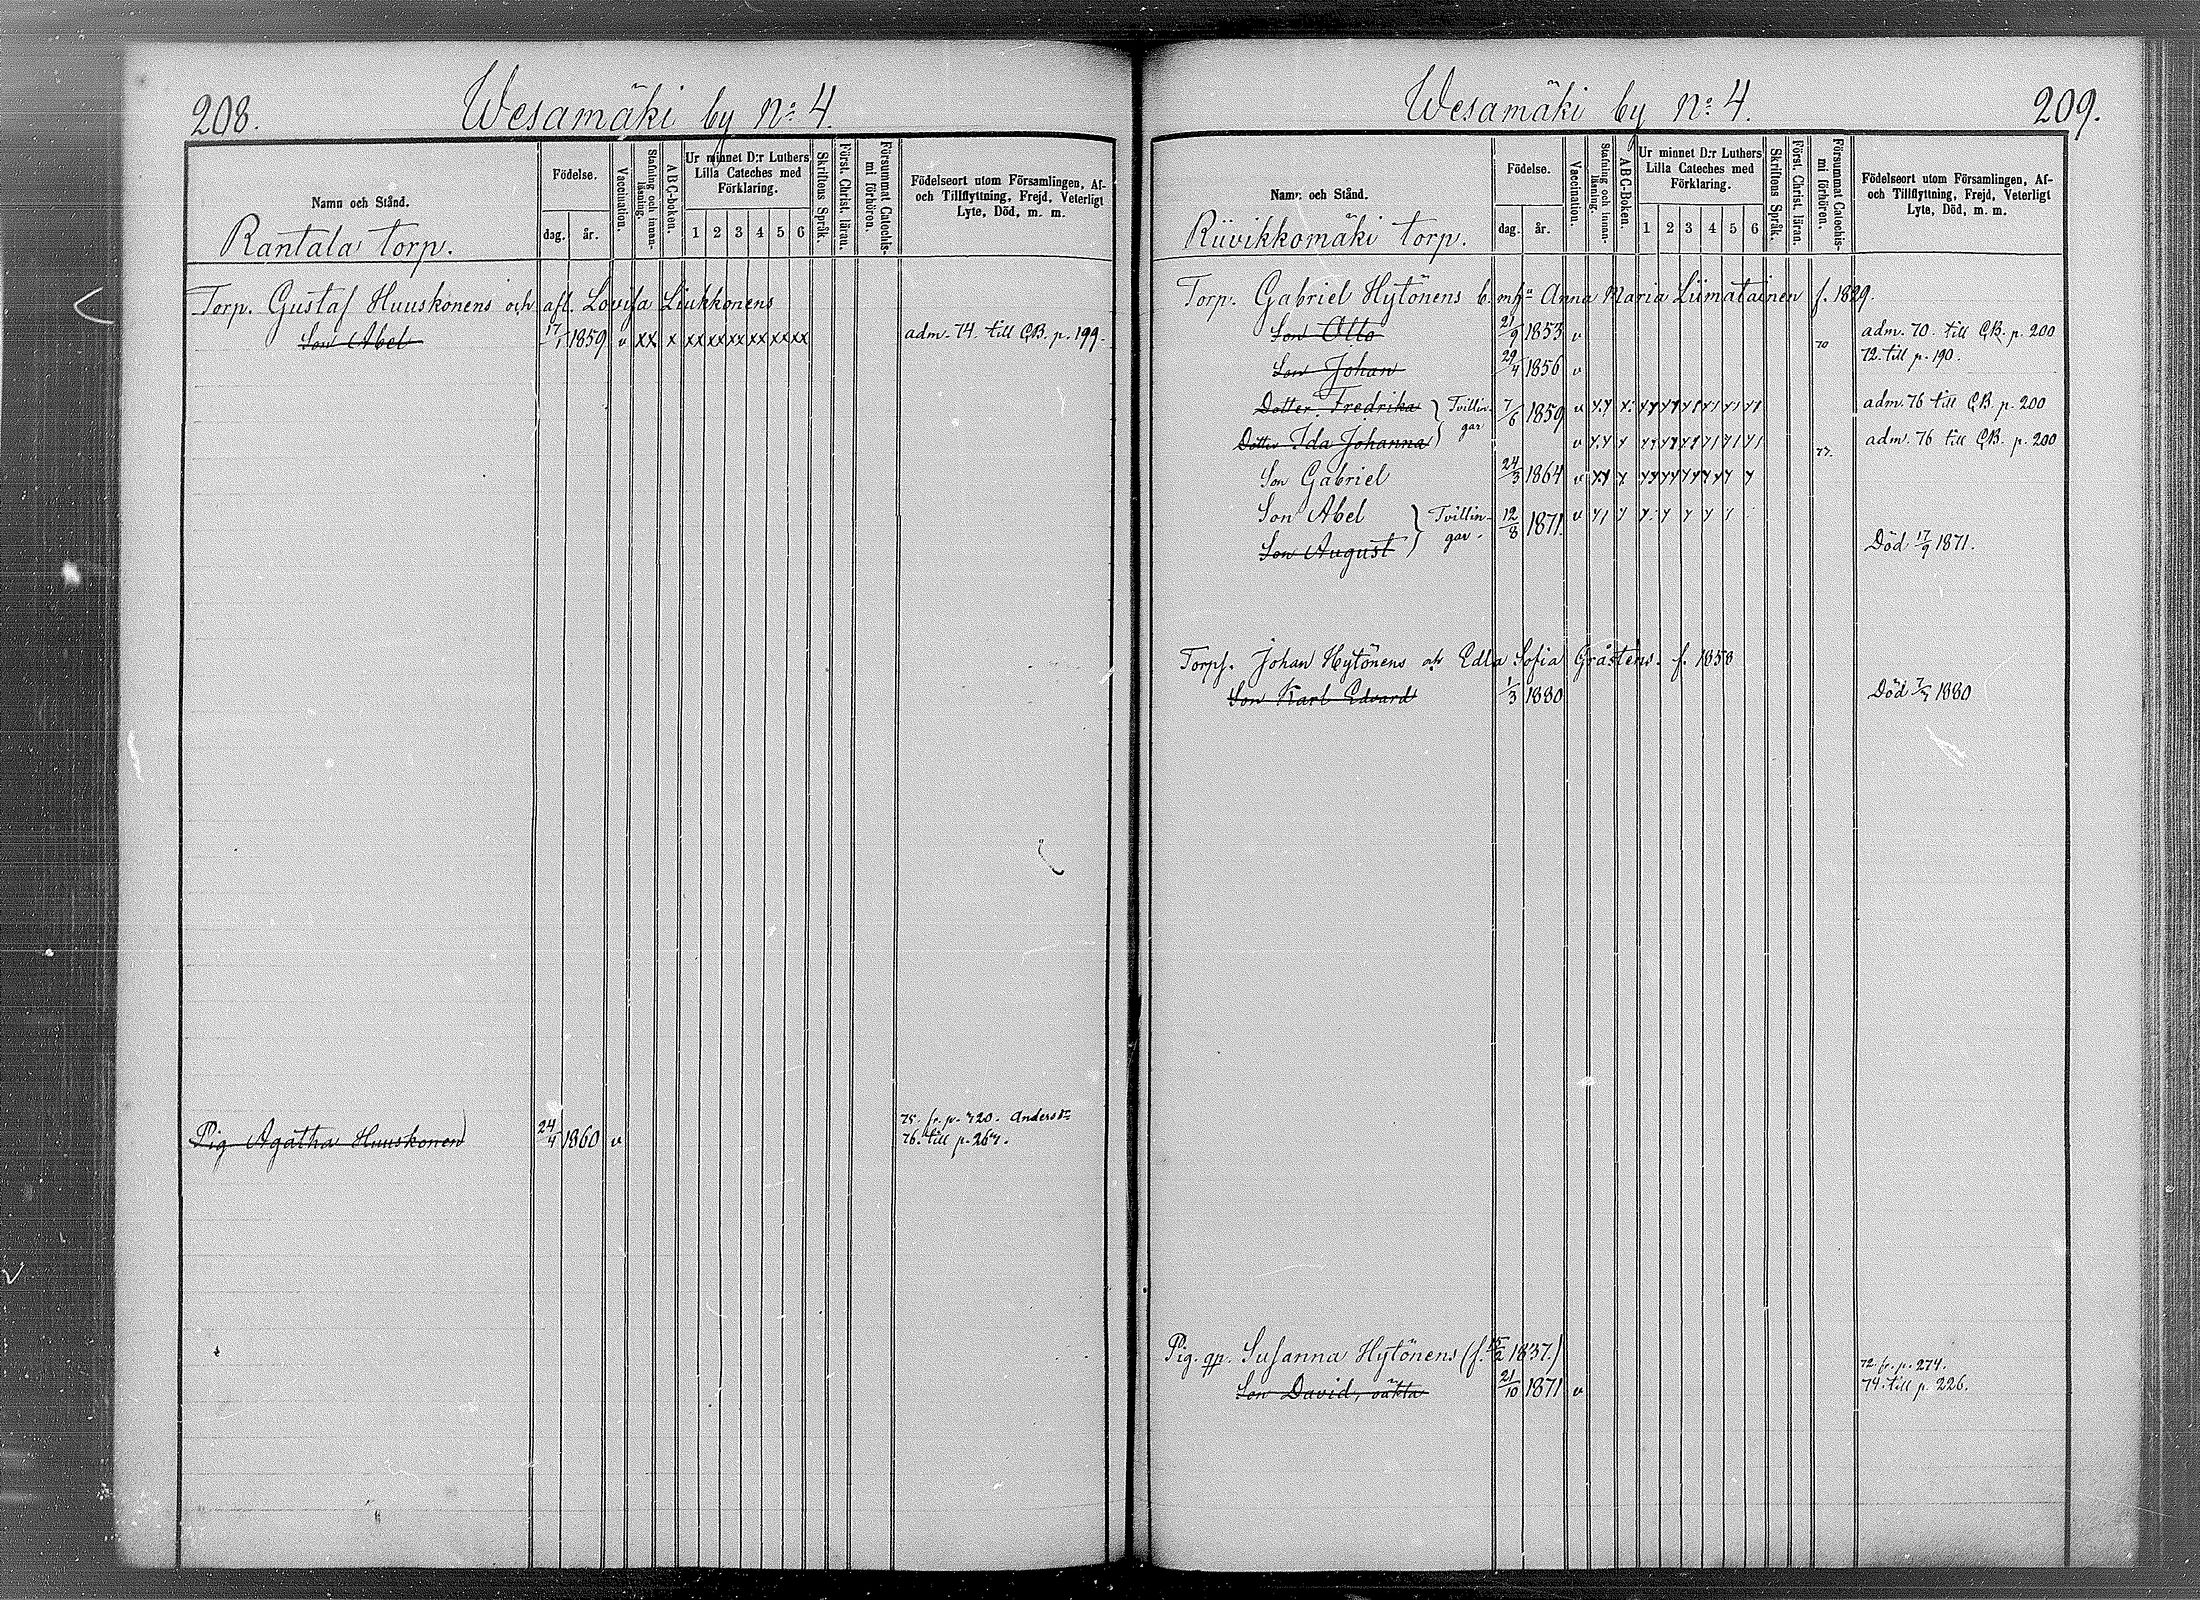 208.
Wesamäki by No 4.
Namn och Stånd.
Födelse.
dag.
år.
Vaccination.
Stafning och innanläsning.
ABC-boken.
Ur minnet D:r Luthers
Lilla Cateches med
Förklaring.
1 2 3 4 5 6
Skriftens Språk.
Först. Christ. läran.
Försummat Catechismi förhören.
Födelseort utom Församlingen, Af-
och Tillflyttning, Frejd, Veterligt
Lyte, Död, m. m.
Rantala torp.
Torp. Gustaf Huuskonens och afl. Lovisa Liukkonens
Son Abel 17/1 1859 v xx x xx xx xx xx xx xx adm. 74 till CB. p. 199.
75. fr. p. 320. Anders
Pig Agatha Huuskonen 24/4 1860 v 76. till p. 267.
Wesamäki by No 4.
209.
Namn och Stånd.
Födelse.
dag.
år.
Vaccination.
Stafning och innanläsning.
ABC-Boken.
Ur minnet D:r Luthers
Lilla Cateches med
Förklaring.
1 2 3 4 5 6
Skriftens Språk.
Först. Christ. läran.
Försummat Catechismi förhören.
Födelseort utom Församlingen, Af-
och Tillflyttning, Frejd, Veterligt
Lyte, Död, m. m.
Riivikkomäki torp.
Torp. Gabriel Hytönens b. m. h:a Anna Maria Liimatainen f. 1829.
Son Otto 21/9 1853 v 70 adm. 70. till CB. p. 200
72. till p. 190.
Son Johan 29/4 1856 v
Dotter Fredrika } Tvillin- 7/6 1859 v adm. 76 till CB. p. 200
Dotter Ida Johanna } gar v 77. adm. 76 till CB. p. 200
Son Gabriel 24/3 1864 v
Son Abel } Tvillin- 12/8 1871. v
Son August } gar. Död 17/9 1871.
Torpf. Johan Hytönens och Edla Sofia Gråstens. f. 1858
Son Karl Edvard 1/3 1880 Död 7/5 1880
Pig. qp. Susanna Hytönens (f. 15/2 1837.)
72 fr. p. 274.
Son David, oäkta 21/10 1871 v 74. till p. 226.